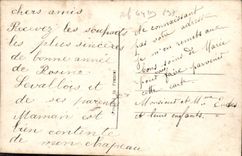 chers amis
Recevez les souhaits
les plus sincères
de bonne année
de Rosine
Levallois et
de ses parents
Maman est
bien contente
de mon chapeau
Ne connaissant
pas votre adresse
je m'en remets aux
bons soins de Marie
pour faire parvenir
cette carte
Monsieur et Mme
et leurs enfants.